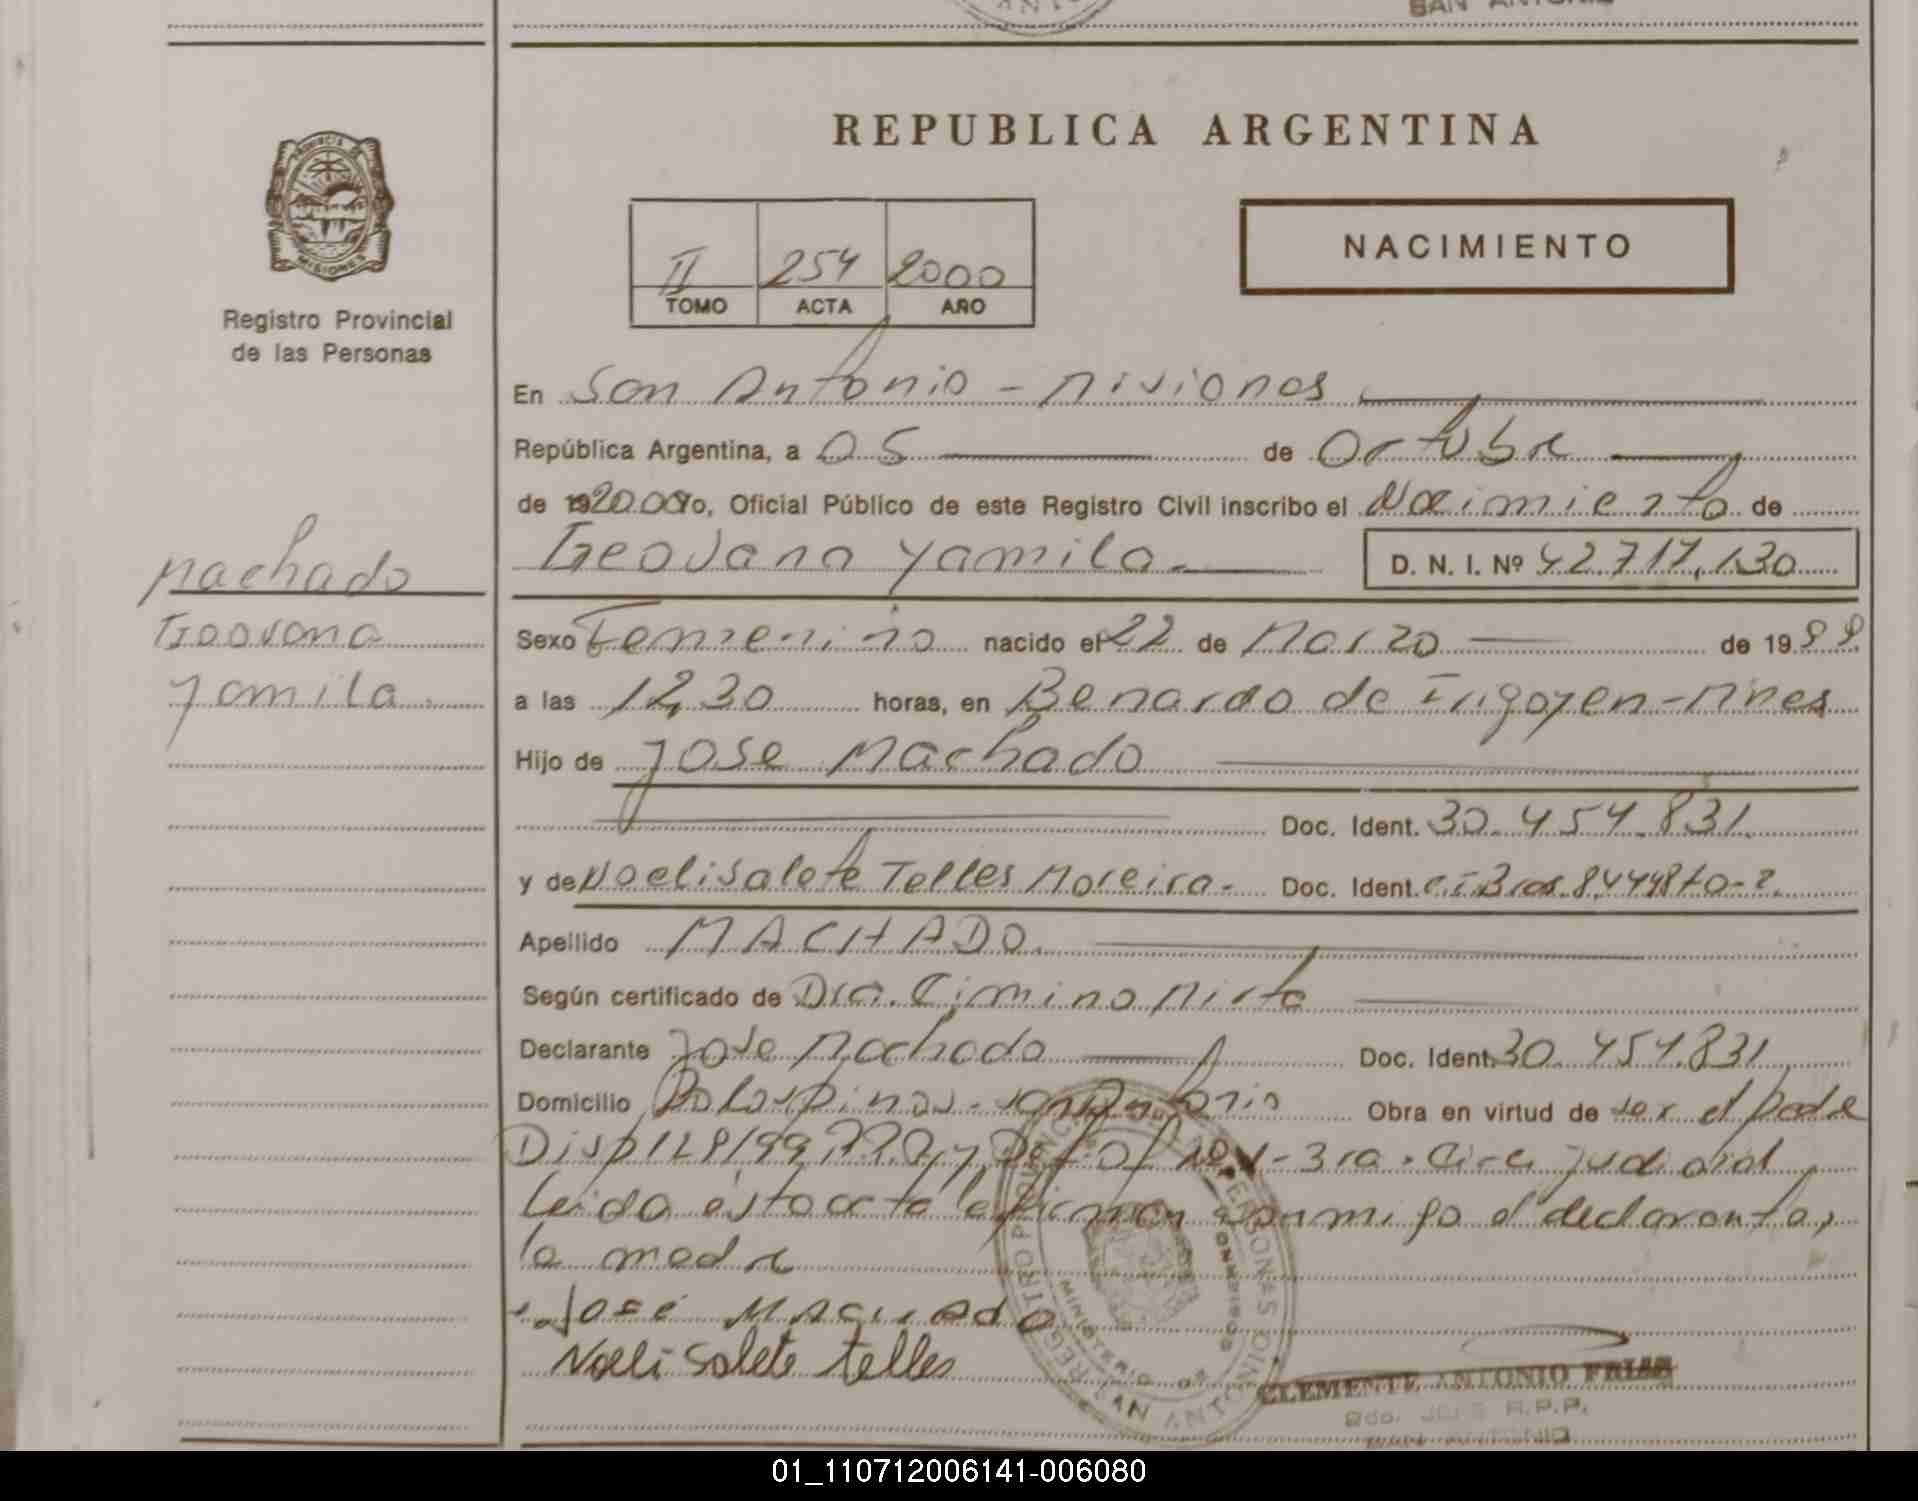 SAN ANTONIO
REPUBLICA ARGENTINA
PROVINCIA DE
MISIONES
Registro Provincial
de las Personas
II 254 2000
TOMO ACTA AÑO
NACIMIENTO
En San Antonio - Misiones
República Argentina, a 05 de Octubre
de 19 2000 Yo, Oficial Público de este Registro Civil inscribo el Nacimiento de
Geovana Yamila.- D. N. I. Nº 42.717.130
Machado
Geovana
Yamila.
Sexo Femenino nacido el 22 de Marzo de 1999
a las 12,30 horas, en Bernardo de Irigoyen - Mnes
Hijo de José Machado
Doc. Ident. 30.454.831.
y de Noeli Salete Telles Moreira.- Doc. Ident.
Apellido MACHADO.
Según certificado de Dra. Cimino Mirta
Declarante José Machado Doc. Ident. 30.454.831
Domicilio Obra en virtud de ser el padre
3ra. Circ. judicial
Leida esta acta la firman conmigo el declarante,
la madre
José Machado
Noeli Salete Telles
REGISTRO PROVINCIAL DE LAS PERSONAS
MINISTERIO DE
SAN ANTONIO
CLEMENTE ANTONIO FRIAS
R.P.P.
SAN ANTONIO
01_110712006141-006080